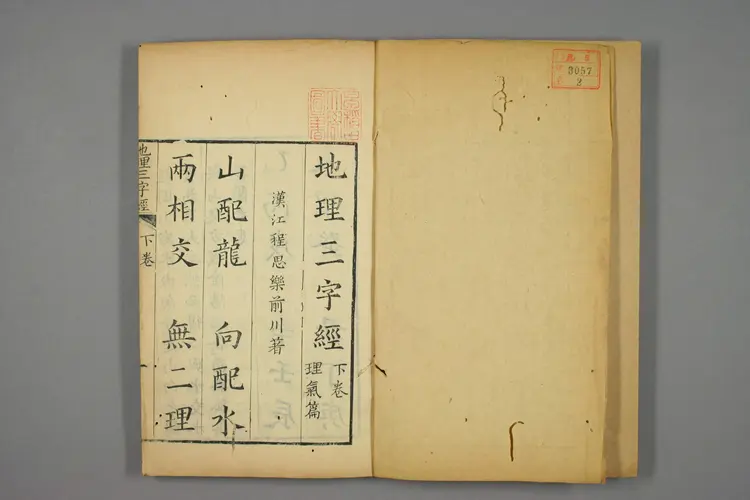 地理三字經 下卷 理氣篇
漢江程思樂前川著
山配龍 向配水
兩相交 無二理
地理三字經 下卷
3057
2